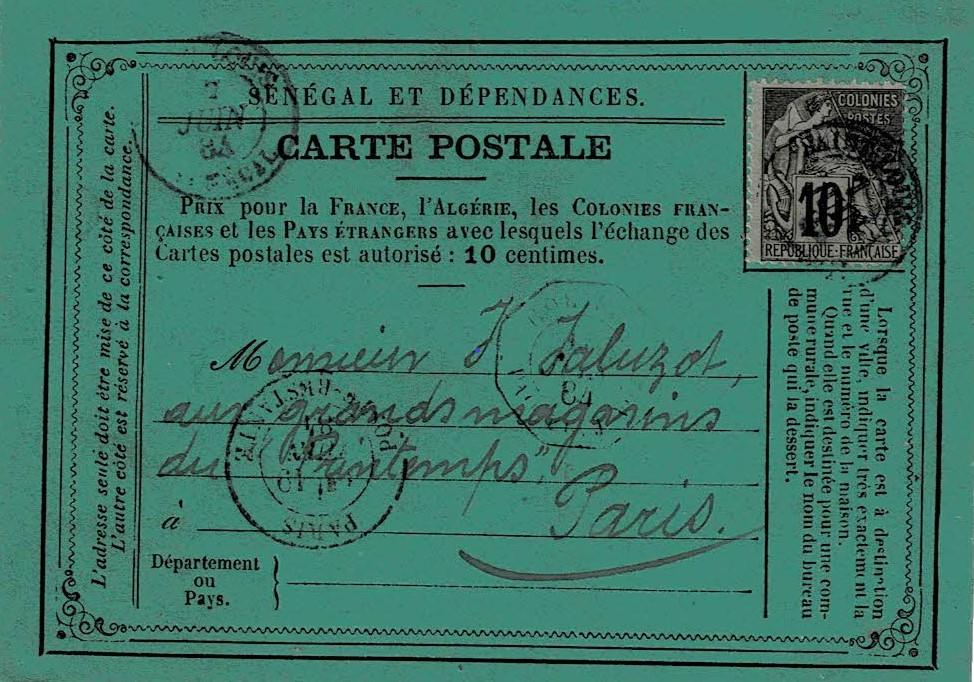 SÉNÉGAL ET DÉPENDANCES.
CARTE POSTALE
PRIX pour la FRANCE, l'ALGÉRIE, les COLONIES FRAN-
ÇAISES et les PAYS ÉTRANGERS avec lesquels l'échange des
Cartes postales est autorisé : 10 centimes.
COLONIES
POSTES
10
RÉPUBLIQUE FRANÇAISE
JUIN
Monsieur J Jaluzot,
aux grands magasins
du "Printemps"
à Paris.
Département
ou
Pays.
PARIS
L'adresse seule doit être mise de ce côté de la carte.
L'autre côté est réservé à la correspondance.
Lorsque la carte est à destination
d'une ville, indiquer très exactement la
rue et le numéro de la maison.
Quand elle est destinée pour une com-
mune rurale, indiquer le nom du bureau
de poste qui la dessert.